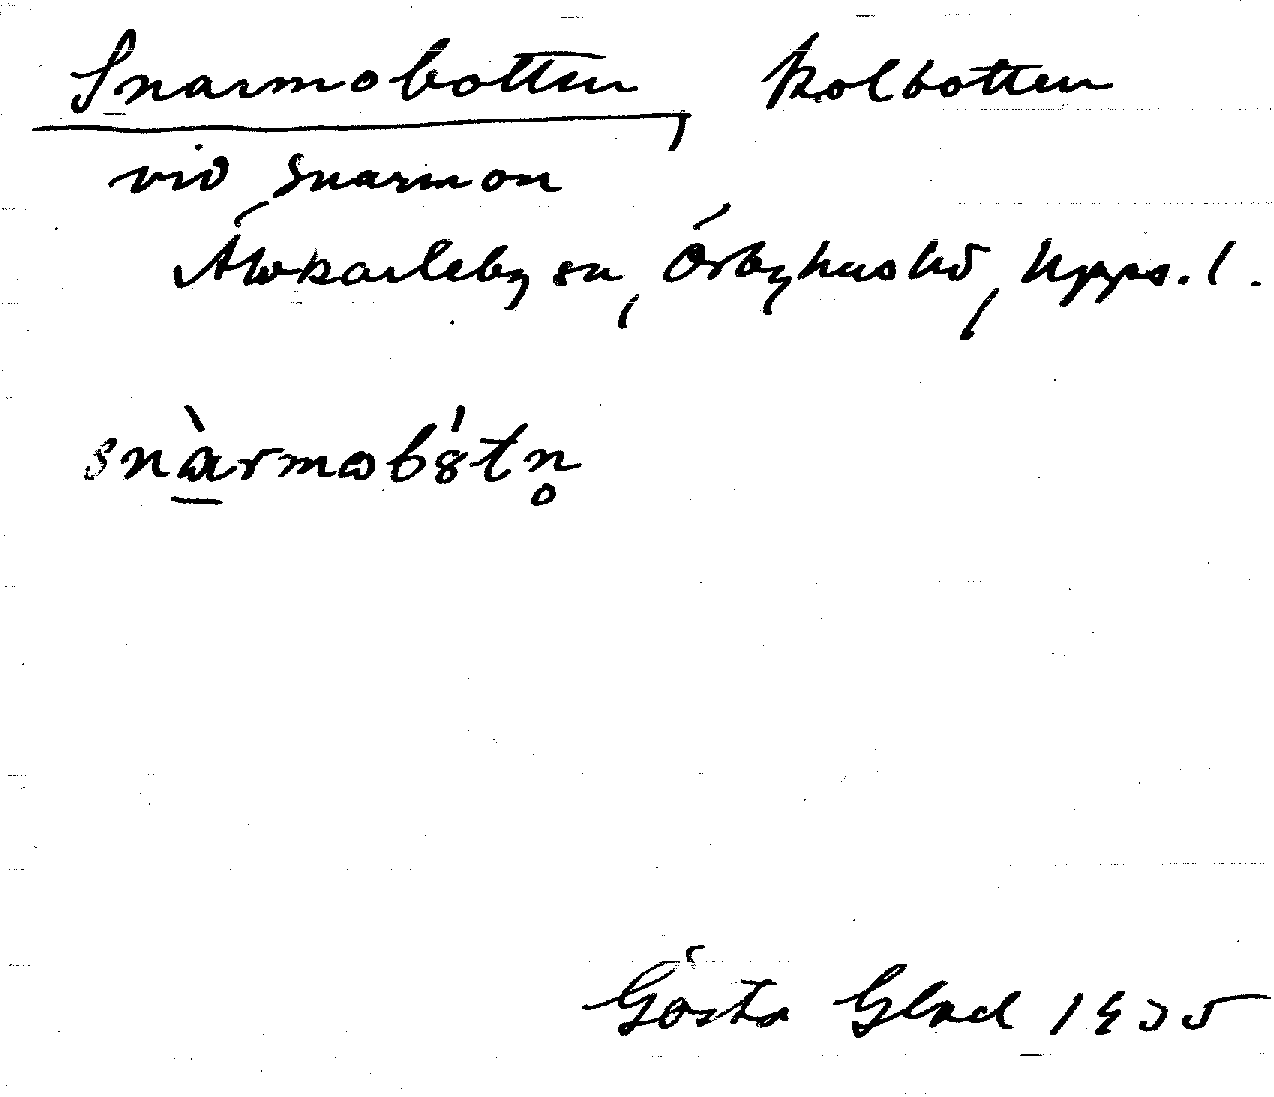 Snarmobotten, kolbotten
vid Snarmon
Älvkarleby sn, Örbyhus hd, Upps. l.
snàrmobótn̥
Gösta Glad 1935